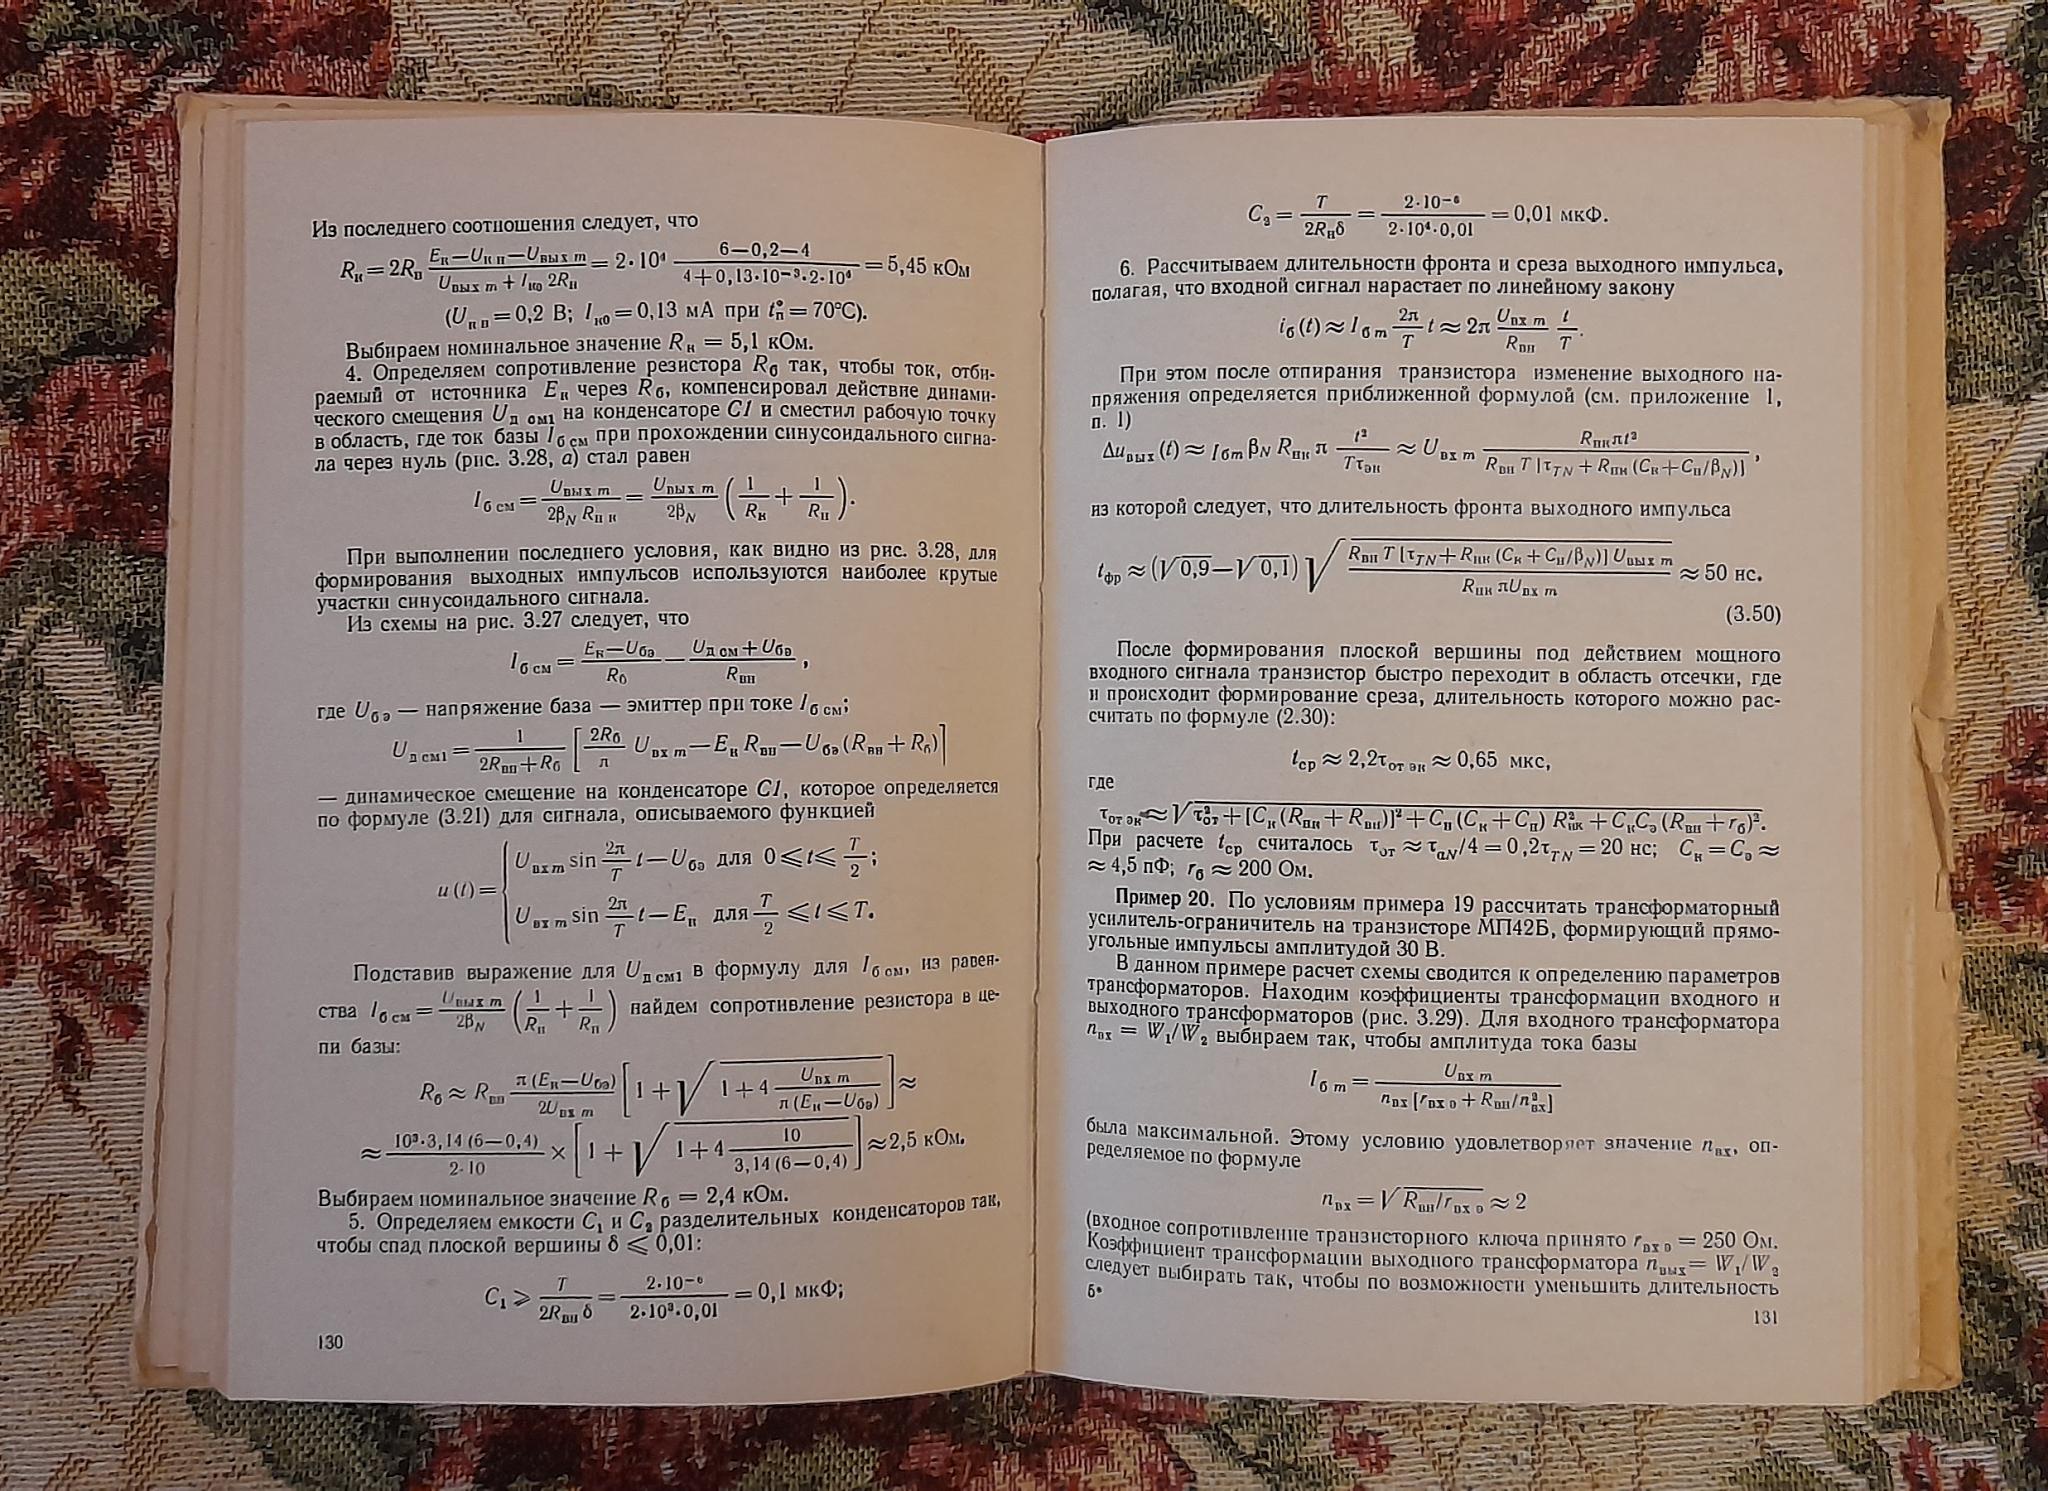 Из последнего соотношения следует, что
Rк = 2Rн (Eк—Uк н—Uвых m)/(Uвых m + Iко 2Rн) = 2·10⁴ (6—0,2—4)/(4+0,13·10⁻³·2·10⁴) = 5,45 кОм
(Uк н = 0,2 В; Iко = 0,13 мА при t°п = 70°С).
Выбираем номинальное значение Rк = 5,1 кОм.
4. Определяем сопротивление резистора Rб так, чтобы ток, отби-
раемый от источника Eк через Rб, компенсировал действие динами-
ческого смещения Uд см1 на конденсаторе C1 и сместил рабочую точку
в область, где ток базы Iб см при прохождении синусоидального сигна-
ла через нуль (рис. 3.28, а) стал равен
Iб см = Uвых m/(2βN Rн к) = Uвых m/(2βN) (1/Rк + 1/Rн).
При выполнении последнего условия, как видно из рис. 3.28, для
формирования выходных импульсов используются наиболее крутые
участки синусоидального сигнала.
Из схемы на рис. 3.27 следует, что
Iб см = (Eк—Uбэ)/Rб — (Uд см + Uбэ)/Rвн,
где Uбэ — напряжение база — эмиттер при токе Iб см;
Uд см1 = 1/(2Rвн + Rб) [2Rб/π Uвх m—Eк Rвн—Uбэ (Rвн + Rб)]
— динамическое смещение на конденсаторе C1, которое определяется
по формуле (3.21) для сигнала, описываемого функцией
u (t) = { Uвх m sin 2π/T t—Uбэ для 0⩽t⩽ T/2;
Uвх m sin 2π/T t—Eк для T/2 ⩽t⩽T.
Подставив выражение для Uд см1 в формулу для Iб см, из равен-
ства Iб см = Uвых m/(2βN) (1/Rк + 1/Rн) найдем сопротивление резистора в це-
пи базы:
Rб ≈ Rвн π (Eк—Uбэ)/(2Uвх m) [1 + √(1 + 4 Uвх m/(π (Eк—Uбэ)))] ≈
≈ 10³·3,14 (6—0,4)/(2·10) × [1 + √(1 + 4 10/(3,14 (6—0,4)))] ≈2,5 кОм.
Выбираем номинальное значение Rб = 2,4 кОм.
5. Определяем емкости C₁ и C₂ разделительных конденсаторов так,
чтобы спад плоской вершины δ ⩽ 0,01:
C₁ ⩾ T/(2Rвн δ) = 2·10⁻⁶/(2·10³·0,01) = 0,1 мкФ;
130
C₂ = T/(2Rнδ) = 2·10⁻⁶/(2·10⁴·0,01) = 0,01 мкФ.
6. Рассчитываем длительности фронта и среза выходного импульса,
полагая, что входной сигнал нарастает по линейному закону
iб (t) ≈ Iб m 2π/T t ≈ 2π Uвх m/Rвн t/T.
При этом после отпирания транзистора изменение выходного на-
пряжения определяется приближенной формулой (см. приложение 1,
п. 1)
Δuвых (t) ≈ Iбm βN Rнк π t²/(Tτэк) ≈ Uвх m Rнкπt²/(Rвн T [τTN + Rнк (Cк+Cн/βN)]),
из которой следует, что длительность фронта выходного импульса
tфр ≈ (√0,9—√0,1) √(Rвн T [τTN + Rнк (Cк + Cн/βN)] Uвых m/(Rнк πUвх m)) ≈ 50 нс.
(3.50)
После формирования плоской вершины под действием мощного
входного сигнала транзистор быстро переходит в область отсечки, где
и происходит формирование среза, длительность которого можно рас-
считать по формуле (2.30):
tср ≈ 2,2τот эк ≈ 0,65 мкс,
где
τот эк ≈ √(τ²от + [Cк (Rнк + Rвн)]² + Cн (Cк + Cн) R²нк + CкCэ (Rвн + rб)²).
При расчете tср считалось τот ≈ ταN/4 = 0,2τTN = 20 нс; Cк = Cэ ≈
≈ 4,5 пФ; rб ≈ 200 Ом.
Пример 20. По условиям примера 19 рассчитать трансформаторный
усилитель-ограничитель на транзисторе МП42Б, формирующий прямо-
угольные импульсы амплитудой 30 В.
В данном примере расчет схемы сводится к определению параметров
трансформаторов. Находим коэффициенты трансформации входного и
выходного трансформаторов (рис. 3.29). Для входного трансформатора
nвх = W₁/W₂ выбираем так, чтобы амплитуда тока базы
Iб m = Uвх m/(nвх [rвх э + Rвн/n²вх])
была максимальной. Этому условию удовлетворяет значение nвх, оп-
ределяемое по формуле
nвх = √(Rвн/rвх э) ≈ 2
(входное сопротивление транзисторного ключа принято rвх э = 250 Ом.
Коэффициент трансформации выходного трансформатора nвых = W₁/W₂
следует выбирать так, чтобы по возможности уменьшить длительность
5*
131